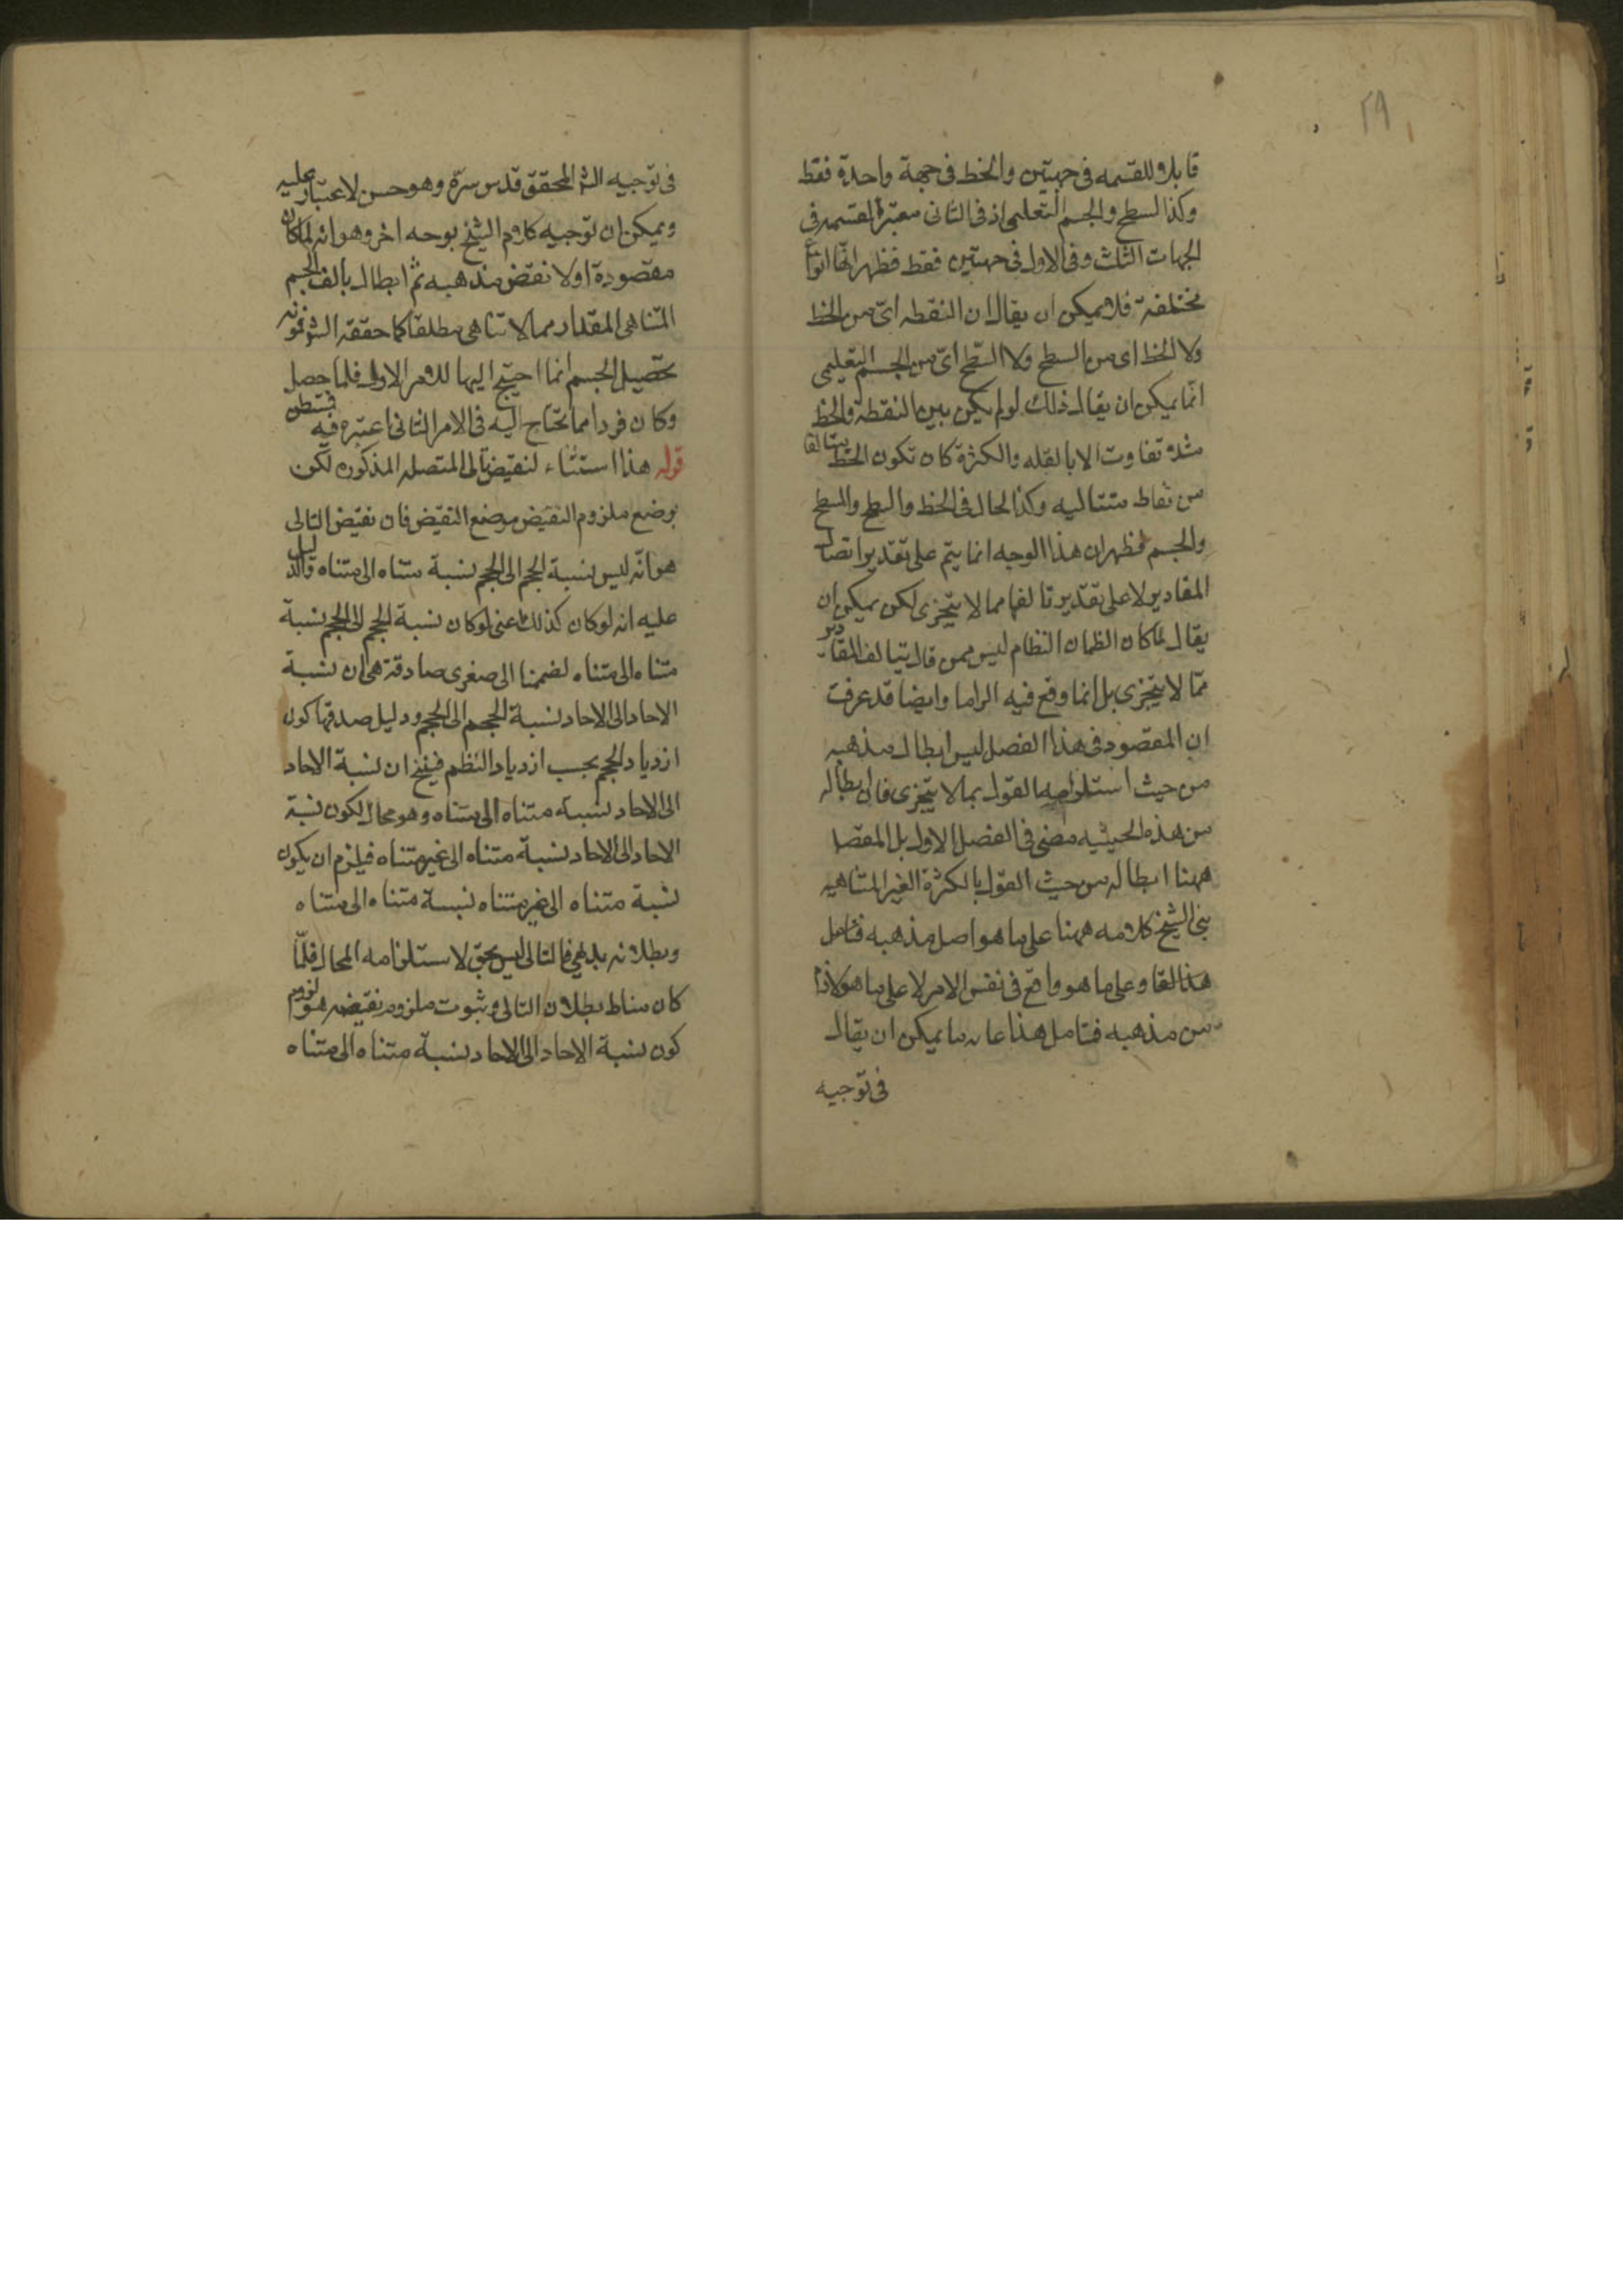 ٢٩
قابلا للقسمه فى جهتين والخط فى جهة واحدة فقط
وكذا السطح والجسم التعليمى اذ فى الثانى معتبرة القسمه فى
الجهات الثلث وفى الاول فى جهتين فقط فظهر انها انواع
مختلفة فلا يمكن ان يقال ان النقطه اى من الخط
ولا الخط اى من السطح ولا السطح اى من الجسم التعليمى
انما يمكن ان يقال ذلك لو لم يكن بين النقطة والخط
مثلا تفاوت الا بالقله والكثرة كان تكون الخط متالفا
من نقاط متتاليه وكذا الحال فى الخط والسطح والسطح
والجسم فظهر ان هذا الوجه انما يتم على تقدير اتصال
المقادير لا على تقدير تالفها مما لا يتجزى لكن يمكن ان
يقال لما كان النظام ليس ممن قال بتالف المقادير
مما لا يتجزى بل انما وقع فيه الزاما وايضا قد عرفت
ان المقصود فى هذا الفصل ليس ابطال مذهبه
من حيث استلزامه القول بما لا يتجزى فان ابطاله
من هذه الحيثيه مضى فى الفصل الاول بل المقصد
ههنا ابطاله من حيث القول بالكثرة الغير المتناهيه
بنى الشيخ كلامه ههنا على ما هو اصل مذهبه فتامل
هذا وعلى ما هو واقع فى نفس الامر لا على ما هو لازم
من مذهبه فتامل هذا ما يمكن ان يقال
فى توجيه
فى توجيه الش المحقق قدس سره وهو حسن لا غبار عليه
ويمكن ان توجيه كلام الشيخ بوجه اخر وهو انه لما كان
مقصوده اولا نقض مذهبه ثم ابطال تالف الجسم
المتناهى المقدار مما لا تناهى مطلقا كما حققه الش
تحصيل الجسم انما احتيج اليها للامر الاول فلما حصل
وكان فردا مما يحتاج اليه فى الامر الثانى اعتبره فيه فتفطن
قوله هذا استثناء لنقيض تالى المتصله المذكوره لكن
بوضع ملزوم النقيض موضع النقيض فان نقيض التالى
هو انه ليس نسبة الحجم الى الحجم نسبة متناه الى متناه والدليل
عليه انه لو كان كذلك اعنى لو كان نسبة الحجم الى الحجم نسبة
متناه الى متناه لضممنا الى صغرى صادقة هى ان نسبة
الاحاد الى الاحاد نسبة الحجم الى الحجم ودليل صدقها كون
ازدياد الحجم بحسب ازدياد النظم فينتج ان نسبة الاحاد
الى الاحاد نسبة متناه الى متناه وهو محال لكون نسبة
الاحاد الى الاحاد نسبة متناه الى غير متناه فيلزم ان يكون
نسبة متناه الى غير متناه نسبة متناه الى متناه
وبطلانه بديهى فالتالى ليس بحق لاستلزامه المحال فلما
كان مناط بطلان التالى وثبوت ملزوم نقيضه هو لزوم
كون نسبة الاحاد الى الاحاد نسبة متناه الى متناه